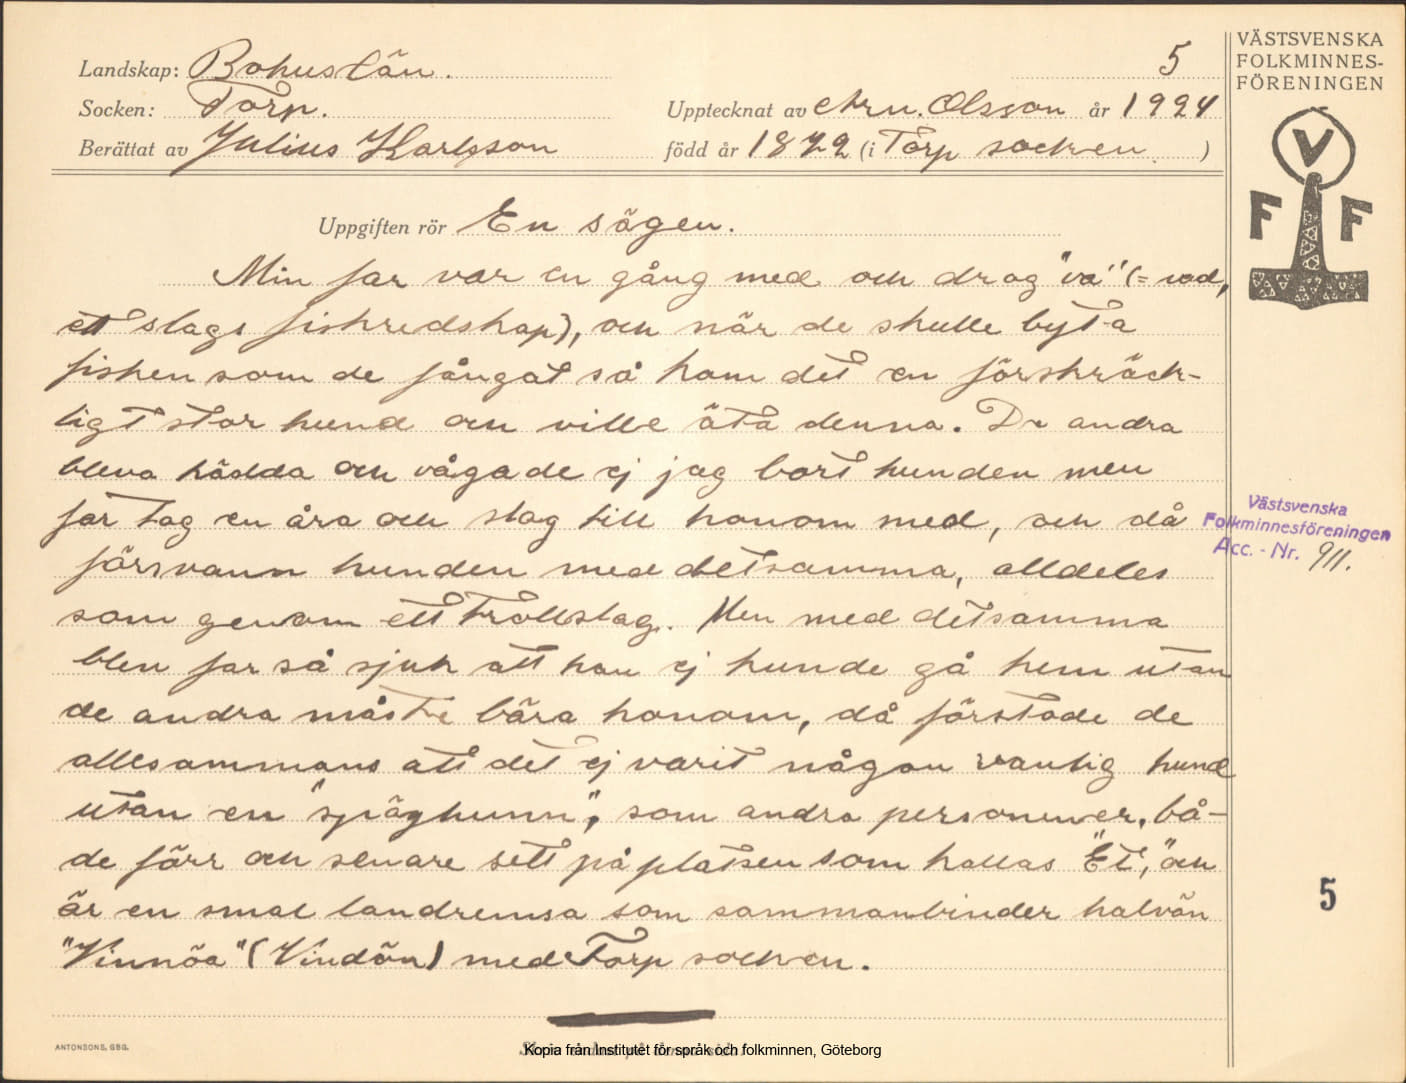 Landskap: Bohuslän. 5
Socken: Torp. Upptecknat av Arn. Olsson år 1924
Berättat av Julius Karlsson född år 1872 (i Torp socken )
Uppgiften rör En sägen.
Min far var en gång med och drog "va" (= vad,
ett slags fiskredskap), och när de skulle byta
fisken som de fångat så kom det en förskräck-
ligt stor hund och ville äta denna. De andra
bleva rädda och vågade ej jag bort hunden men
far tog en åra och slog till honom med, och då
försvann hunden med detsamma, alldeles
som genom ett trollslag. Men med detsamma
blev far så sjuk att han ej kunde gå hem utan
de andra måste bära honom, då förstode de
allesammans att det ej varit någon vanlig hund
utan en "spöghunn", som andra personer, bå-
de förr och senare sett på platsen som kallas "Et", och
är en smal landremsa som sammanbinder halvön
"Vinnöa" (Vindön) med Torp socken.
VÄSTSVENSKA
FOLKMINNES-
FÖRENINGEN
V
F F
Västsvenska
Folkminnesföreningen
Acc. - Nr. 911.
5
ANTONSONS, GBG.
Kopia från Institutet för språk och folkminnen, Göteborg